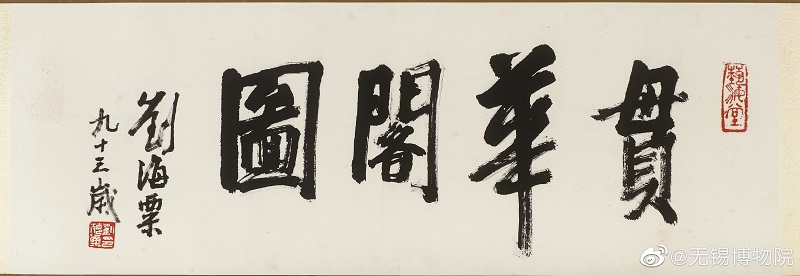 貫華閣圖
劉海粟
九十三歲
@无锡博物院